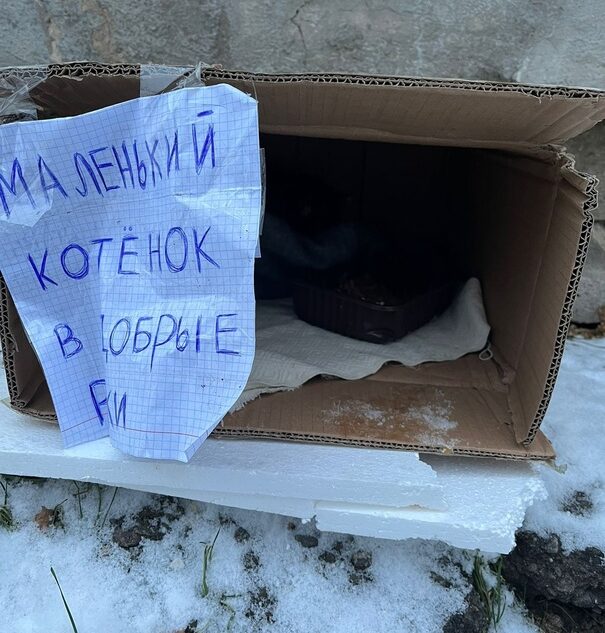 МАЛЕНЬКИЙ
КОТЁНОК
В ДОБРЫЕ